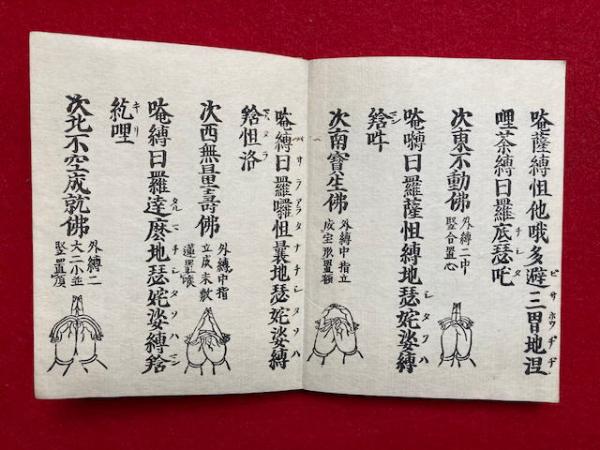 唵薩縛怛他哦多避三冒地涅
哩荼縛日羅底瑟吒
次東不動佛
外縛二中
竪合置心
唵嚩日羅薩怛縛地瑟姹娑縛
𤚥吽
次南寶生佛
外縛中指立
成宝形置額
唵縛日羅囉怛曩地瑟姹娑縛
𤚥怛洛
次西無量壽佛
外縛中指
立成未敷
蓮置喉
唵縛日羅達麼地瑟姹娑縛𤚥
紇哩
次北不空成就佛
外縛二
大二小並
竪置頂